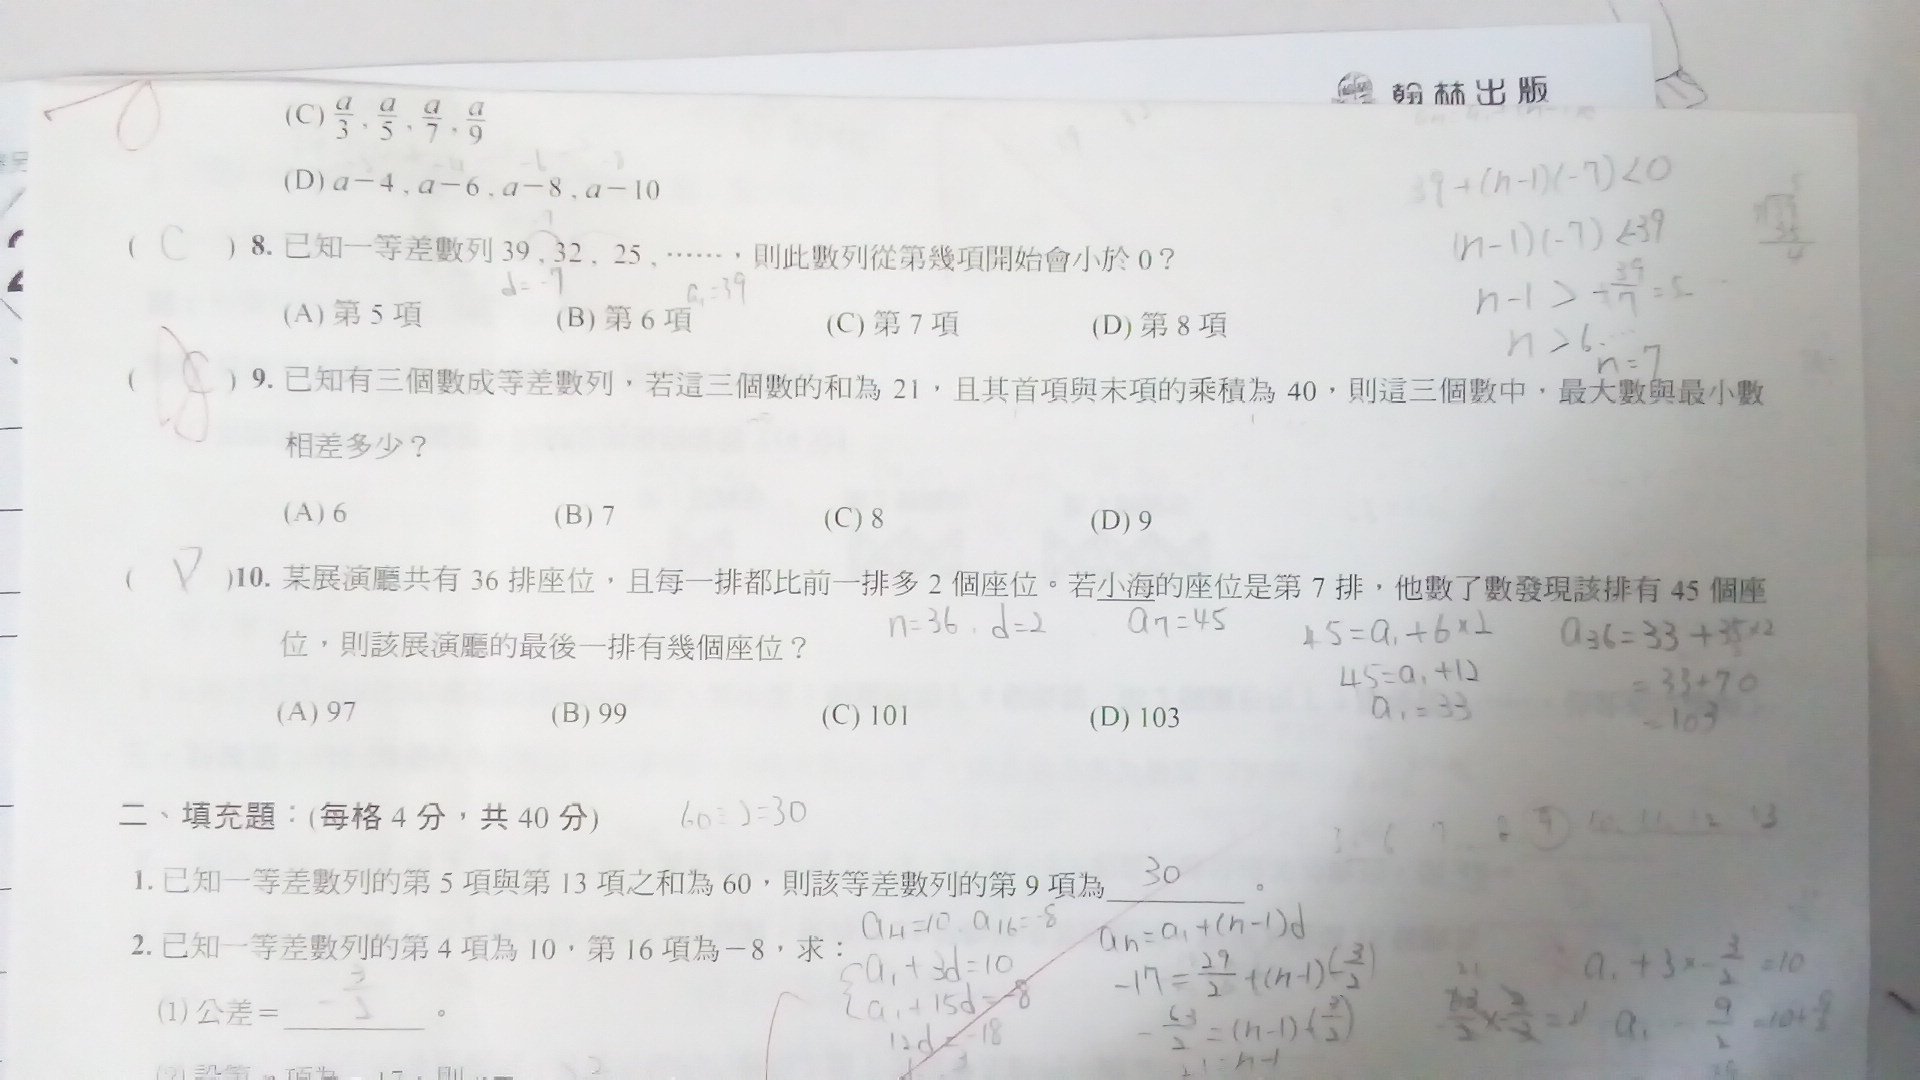 翰林出版
(C) a/3 , a/5 , a/7 , a/9
(D) a－4 , a－6 , a－8 , a－10
39+(n-1)(-7)<0
( C ) 8. 已知一等差數列 39 , 32 , 25 , ⋯⋯，則此數列從第幾項開始會小於 0？
(n-1)(-7)<-39
d=-7
a₁=39
(A) 第 5 項 (B) 第 6 項 (C) 第 7 項 (D) 第 8 項
n>6
n=7
( ) 9. 已知有三個數成等差數列，若這三個數的和為 21，且其首項與末項的乘積為 40，則這三個數中，最大數與最小數
相差多少？
(A) 6 (B) 7 (C) 8 (D) 9
( D )10. 某展演廳共有 36 排座位，且每一排都比前一排多 2 個座位。若小海的座位是第 7 排，他數了數發現該排有 45 個座
n=36 , d=2 a₇=45 45=a₁+6×2 a₃₆=33+35×2
位，則該展演廳的最後一排有幾個座位？
45=a₁+12 =33+70
a₁=33 =103
(A) 97 (B) 99 (C) 101 (D) 103
二、填充題：(每格 4 分，共 40 分) 60÷2=30
1. 已知一等差數列的第 5 項與第 13 項之和為 60，則該等差數列的第 9 項為 30 。
a₄=10 , a₁₆=-8 aₙ=a₁+(n-1)d
2. 已知一等差數列的第 4 項為 10，第 16 項為－8，求：
a₁+3d=10 -17=29/2+(n-1)(-3/2) a₁+3×-3/2=10
(1) 公差＝ -3/2 。
a₁+15d=-8 -63/2=(n-1)(-3/2)
12d=-18 21=n-1